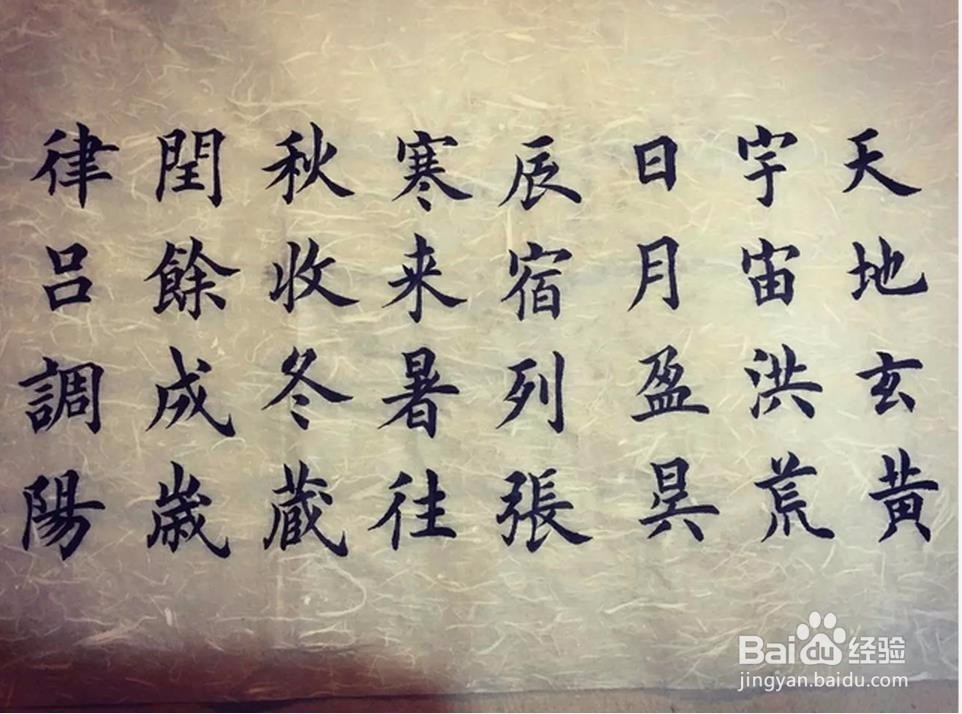 天地玄黄
宇宙洪荒
日月盈昃
辰宿列張
寒来暑往
秋收冬蔵
閏餘成歲
律呂調陽
Baidu经验
jingyan.baidu.com